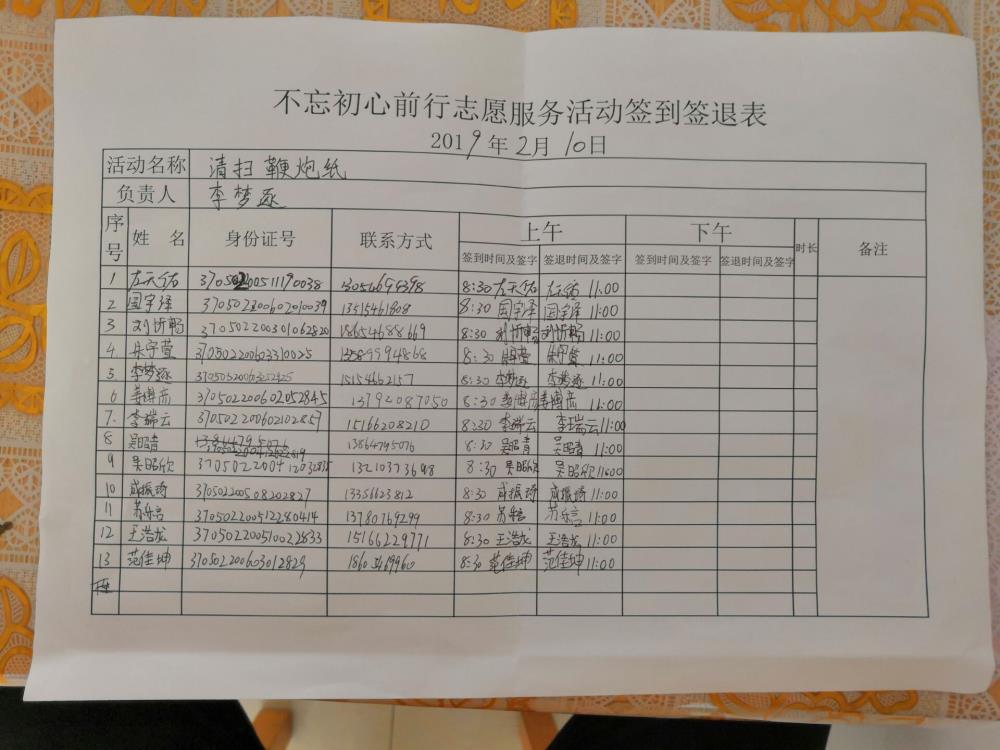 不忘初心前行志愿服务活动签到签退表
2019年2月10日
活动名称 清扫鞭炮纸
负责人 李梦逐
序号 姓名 身份证号 联系方式 上午 下午 时长 备注
签到时间及签字 签退时间及签字 签到时间及签字 签退时间及签字
1 左天佑 8:30 左天佑 左天佑 11:00
2 国宇泽 370502200602010039 13515461808 8:30 国宇泽 国宇泽 11:00
3 刘忻畅 370502200301062820 18654688669 8:30 刘忻畅 刘忻畅 11:00
4 370502200603310025 13589994868 8:30 11:00
5 李梦逐 15154662157 8:30 李梦逐 李梦逐 11:00
6 370502200602052845 13792087050 8:30 11:00
7 李瑞云 370502200602102857 15166208210 8:30 李瑞云 李瑞云 11:00
8 吴昭青 13864795076 8:30 吴昭青 吴昭青 11:00
9 吴昭欣 13210373698 8:30 吴昭欣 吴昭欣 11:00
10 成振琦 370502200508202827 13356623812 8:30 成振琦 成振琦 11:00
11 苏乐言 370502200512280414 13780769299 8:30 苏乐言 苏乐言 11:00
12 王浩龙 370502200510022833 15166229771 8:30 王浩龙 王浩龙 11:00
13 范佳坤 370502200603012829 8:30 范佳坤 范佳坤 11:00